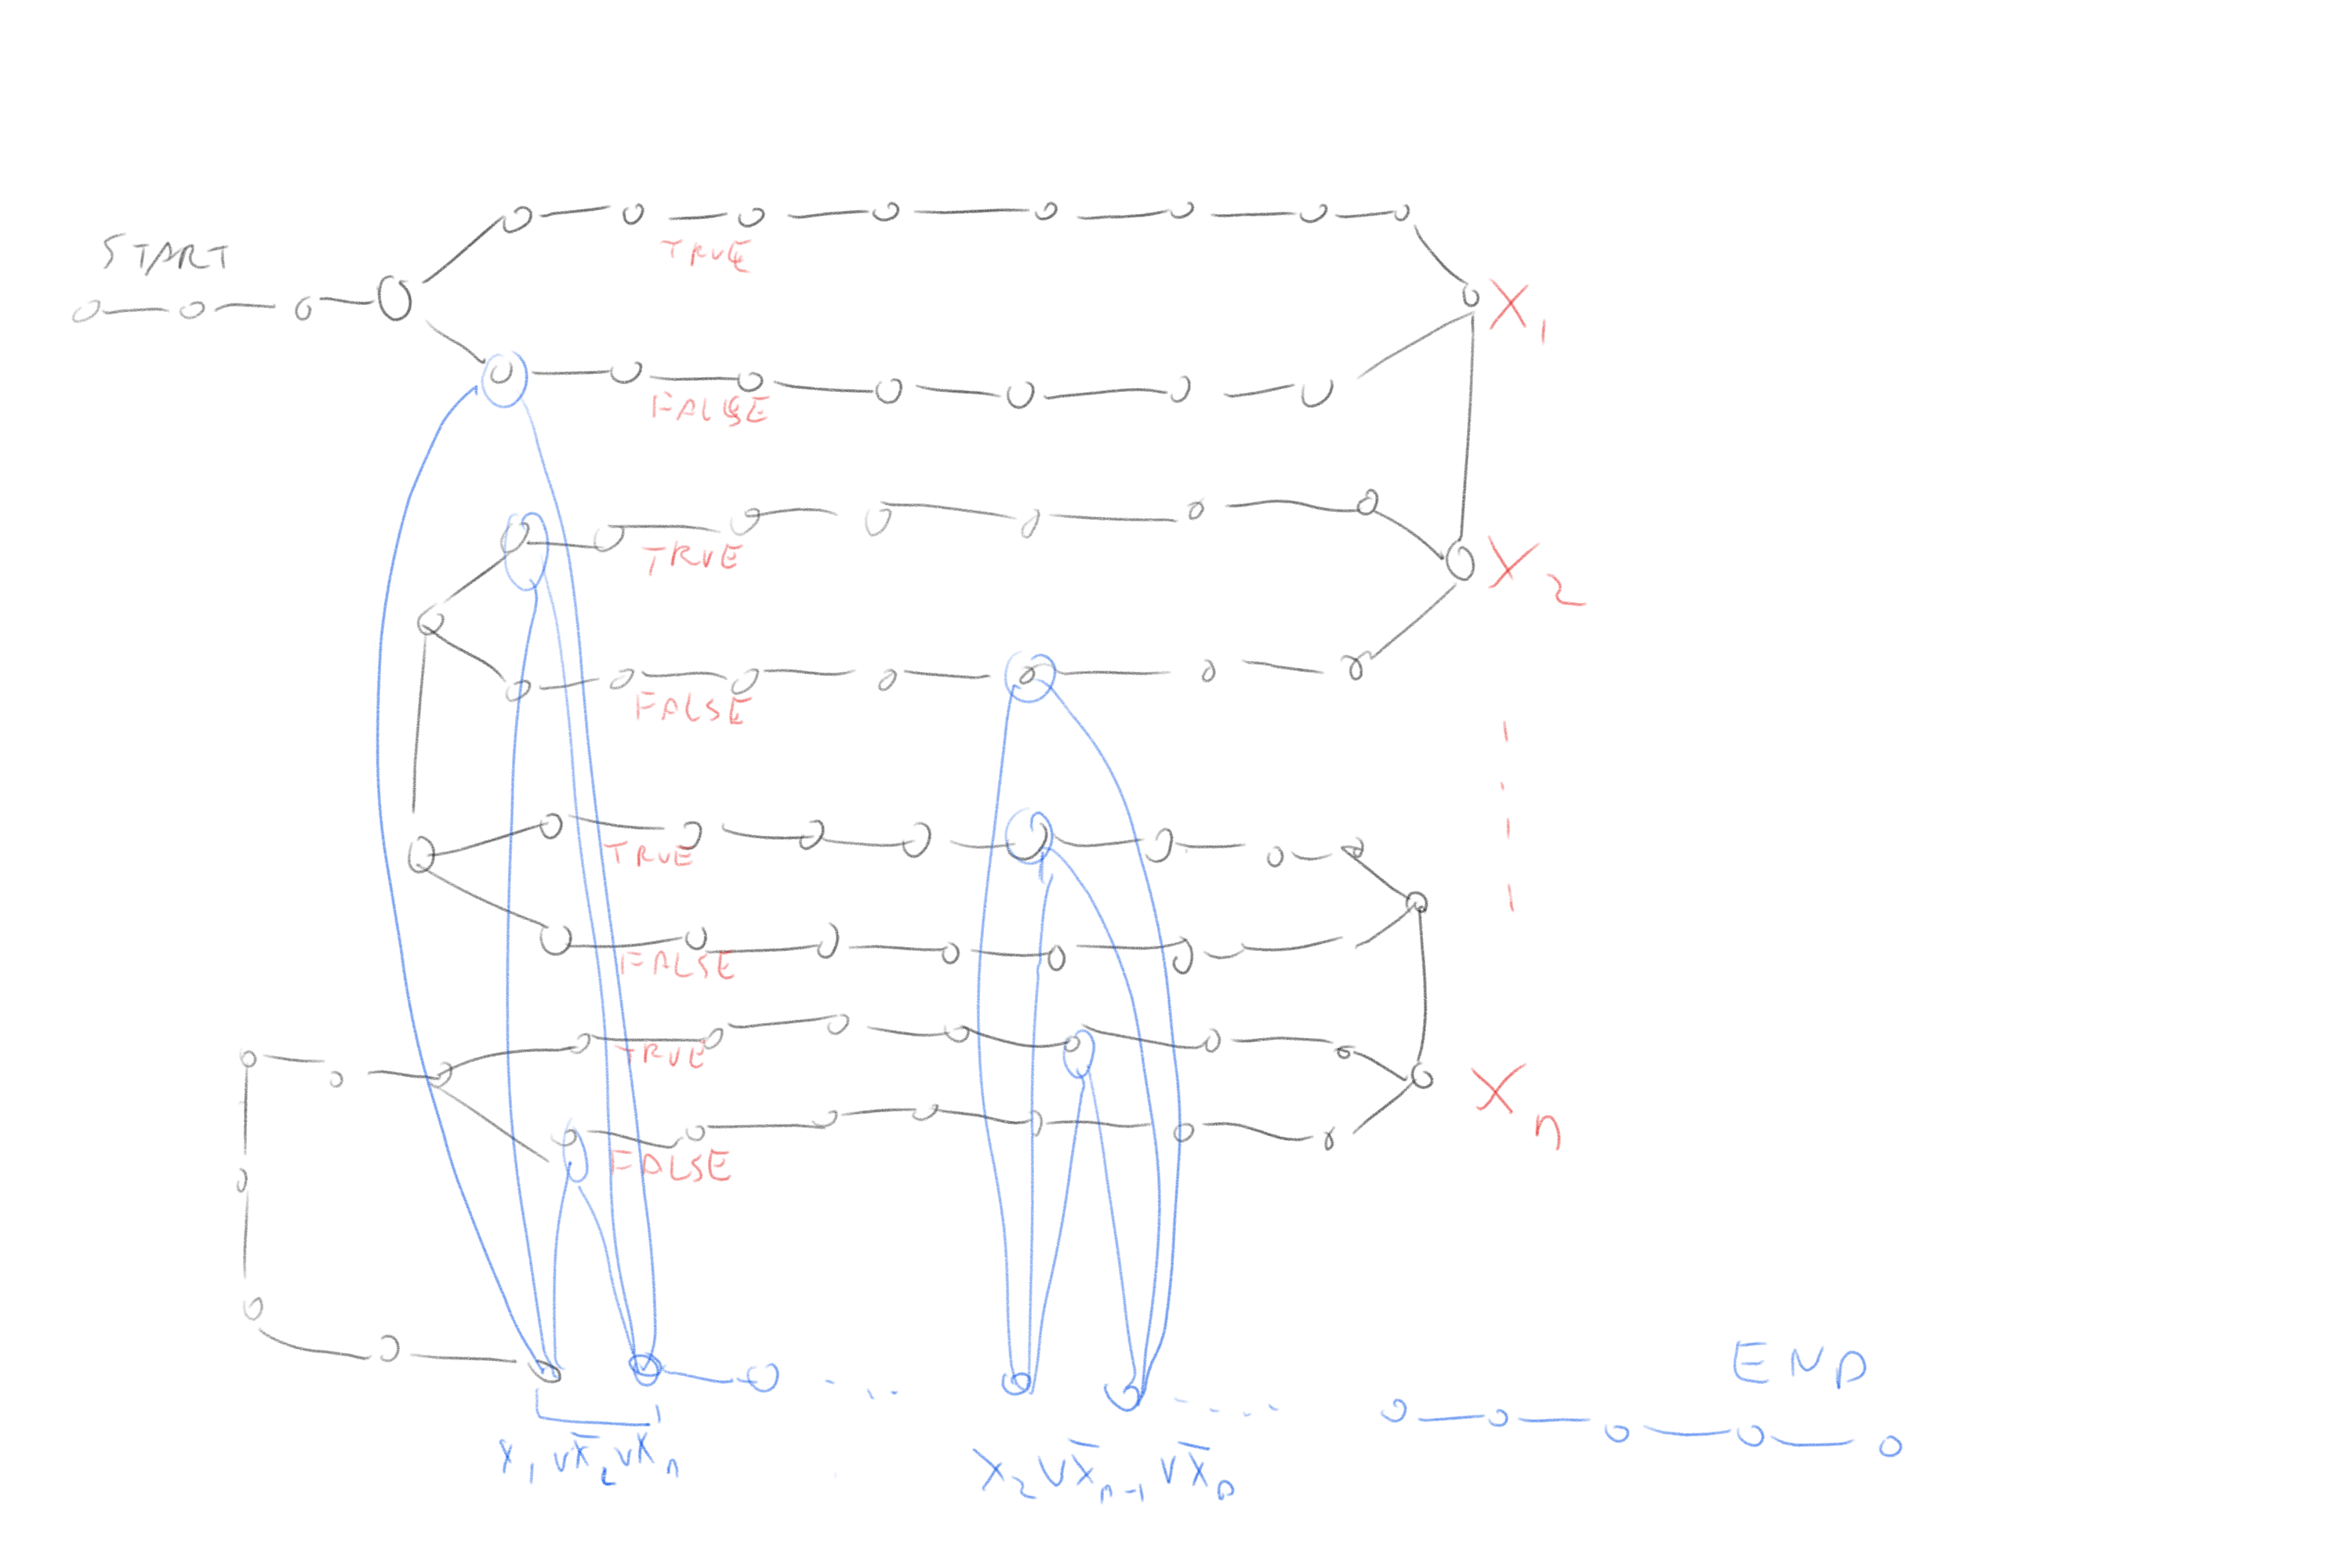 START
TRUE
X1
FALSE
TRUE
X2
FALSE
TRUE
FALSE
TRUE
Xn
FALSE
END
x1 ∨ x̅2 ∨ xn
x2 ∨ x̅n-1 ∨ x̅n